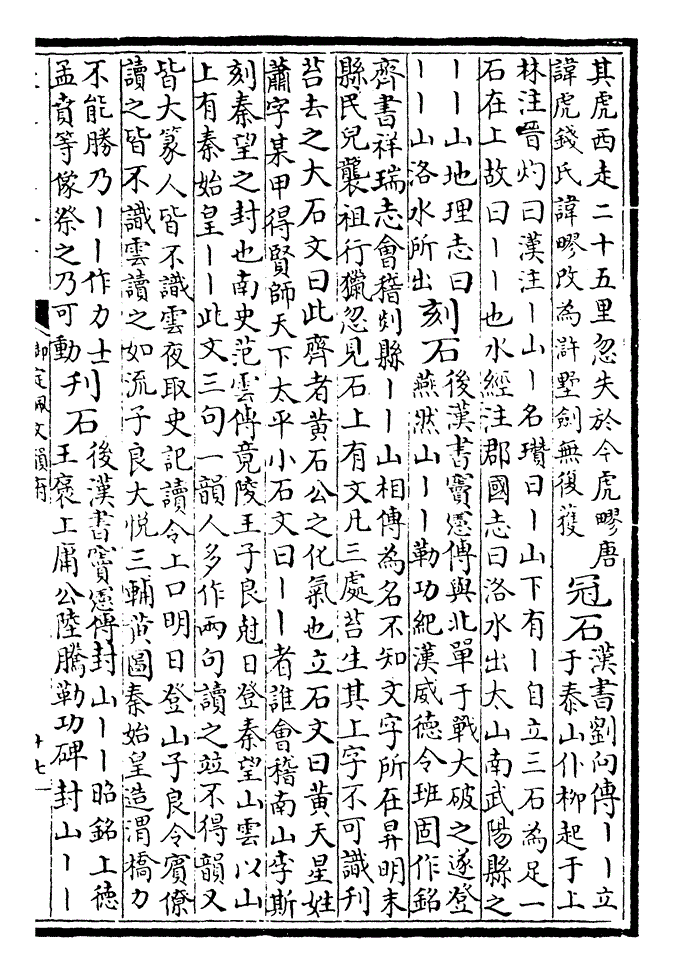 其虎西走二十五里忽失於今虎疁唐
諱虎錢氏諱疁改為許墅劍無復獲
冠石
漢書劉向傳丨丨立
于泰山仆柳起于上
林注晉灼曰漢注丨山丨名瓚曰丨山下有丨自立三石為足一
石在上故曰丨丨也水經注郡國志曰洛水出太山南武陽縣之
丨丨山地理志曰
丨丨山洛水所出
刻石
後漢書竇憲傳與北單于戰大破之遂登
燕然山丨丨勒功紀漢威德令班固作銘
齊書祥瑞志會稽剡縣丨丨山相傳為名不知文字所在昇明末
縣民兒襲祖行獵忽見石上有文凡三處苔生其上字不可識刋
苔去之大石文曰此齊者黄石公之化氣也立石文曰黄天星姓
蕭字某甲得賢師天下太平小石文曰丨丨者誰會稽南山李斯
刻秦望之封也南史范雲傳竟陵王子良尅日登秦望山雲以山
上有秦始皇丨丨此文三句一韻人多作兩句讀之竝不得韻又
皆大篆人皆不識雲夜取史記讀令上口明日登山子良令賓僚
讀之皆不識雲讀之如流子良大悦三輔黄圖秦始皇造渭橋力
不能勝乃丨丨作力士
孟賁等像祭之乃可動
刋石
後漢書竇憲傳封山丨丨昭銘上德
王褒上庸公陸騰勒功碑封山丨丨
御定佩文韻府